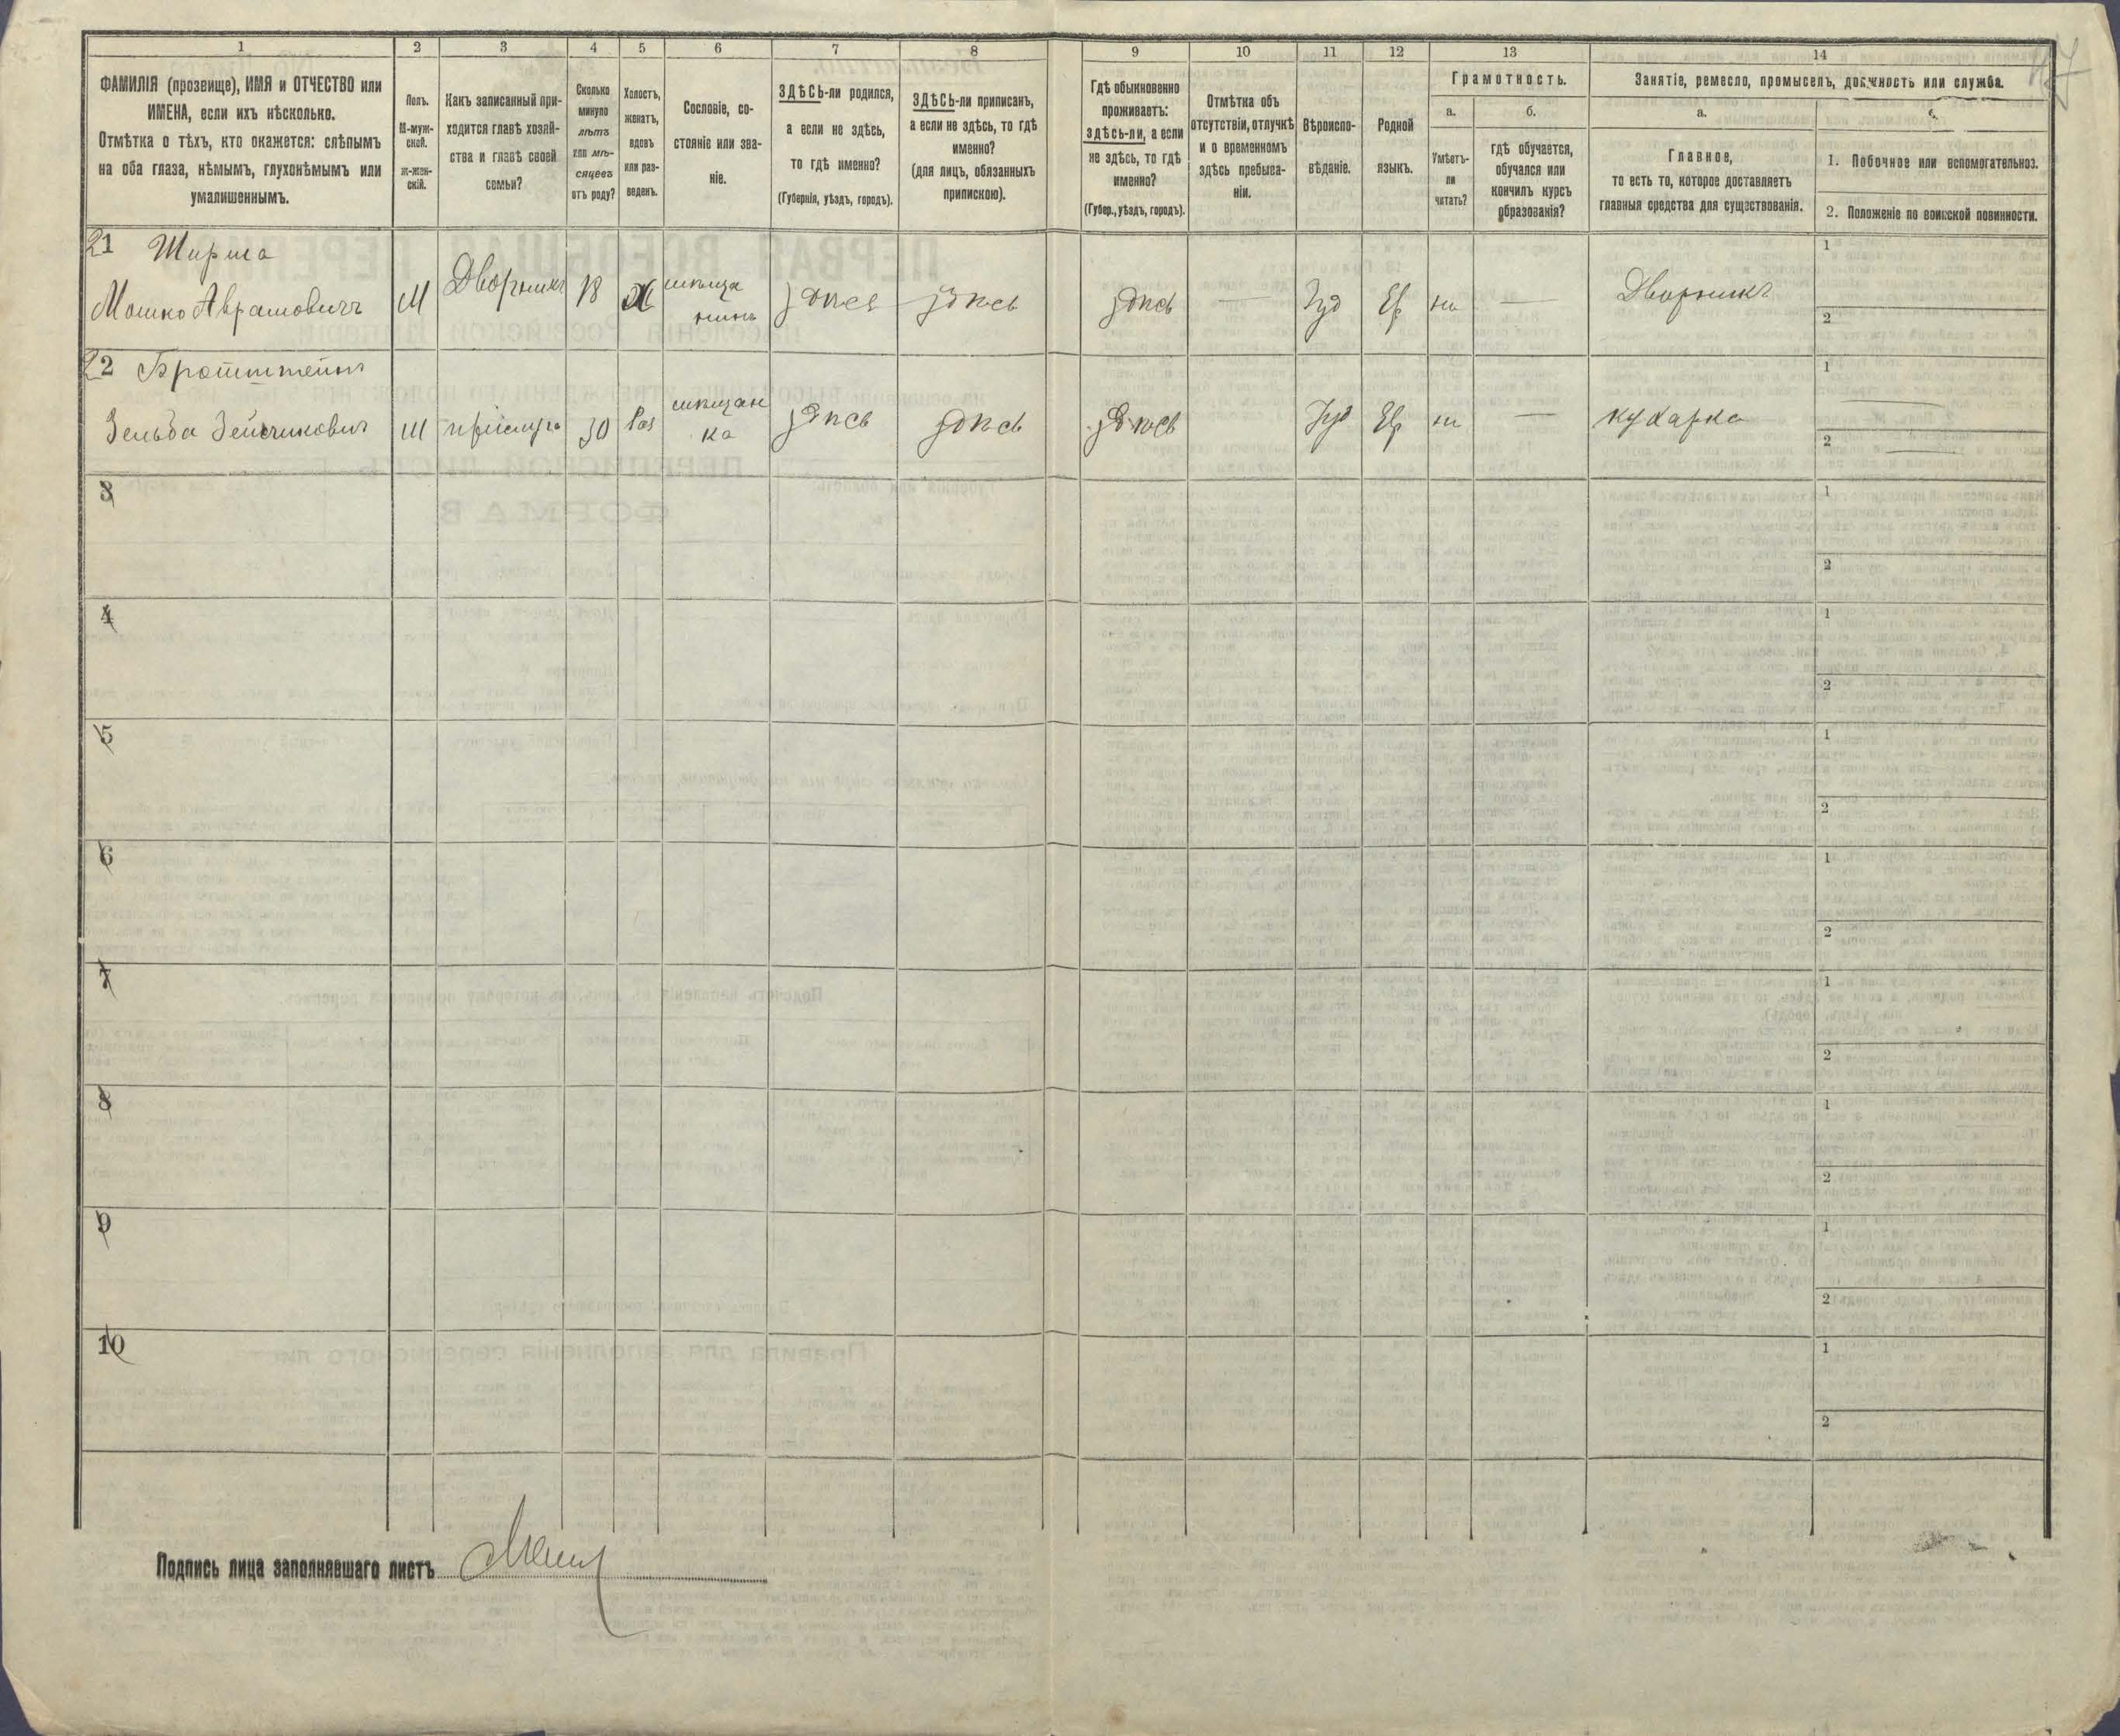 1 2 3 4 5 6 7 8 9 10 11 12 13 14
ФАМИЛІЯ (прозвище), ИМЯ и ОТЧЕСТВО или
ИМЕНА, если ихъ нѣсколько.
Отмѣтка о тѣхъ, кто окажется: слѣпымъ
на оба глаза, нѣмымъ, глухонѣмымъ или
умалишеннымъ.
Полъ.
М-муж-
ской.
Ж-жен-
скій.
Какъ записанный при-
ходится главѣ хозяй-
ства и главѣ своей
семьи?
Сколько
минуло
лѣтъ
или мѣ-
сяцевъ
отъ роду?
Холостъ,
женатъ,
вдовъ
или раз-
веденъ.
Сословіе, со-
стояніе или зва-
ніе.
ЗДѢСЬ-ли родился,
а если не здѣсь,
то гдѣ именно?
(Губернія, уѣздъ, городъ).
ЗДѢСЬ-ли приписанъ,
а если не здѣсь, то гдѣ
именно?
(для лицъ, обязанныхъ
припискою).
Гдѣ обыкновенно
проживаетъ:
здѣсь-ли, а если
не здѣсь, то гдѣ
именно?
(Губер., уѣздъ, городъ).
Отмѣтка объ
отсутствіи, отлучкѣ
и о временномъ
здѣсь пребыва-
ніи.
Вѣроиспо-
вѣданіе.
Родной
языкъ.
Грамотность.
а.
Умѣетъ-
ли
читать?
б.
гдѣ обучается,
обучался или
кончилъ курсъ
образованія?
Занятіе, ремесло, промыселъ, должность или служба.
а.
Главное,
то есть то, которое доставляетъ
главныя средства для существованія.
1. Побочное или вспомогательное.
2. Положеніе по воинской повинности.
21 Ширма
Мошко Аврамовичъ М Дворникъ 18 Х мѣща
нинъ здѣсь здѣсь здѣсь — Іуд Ев не — Дворникъ 1
2
22
прислуга 30 Раз мѣщан
ка здѣсь здѣсь здѣсь Іуд Ев не — кухарка 1
2
3 1
2
4 1
2
5 1
2
6 1
2
7 1
2
8 1
2
9 1
2
10 1
2
Подпись лица заполнявшаго листъ